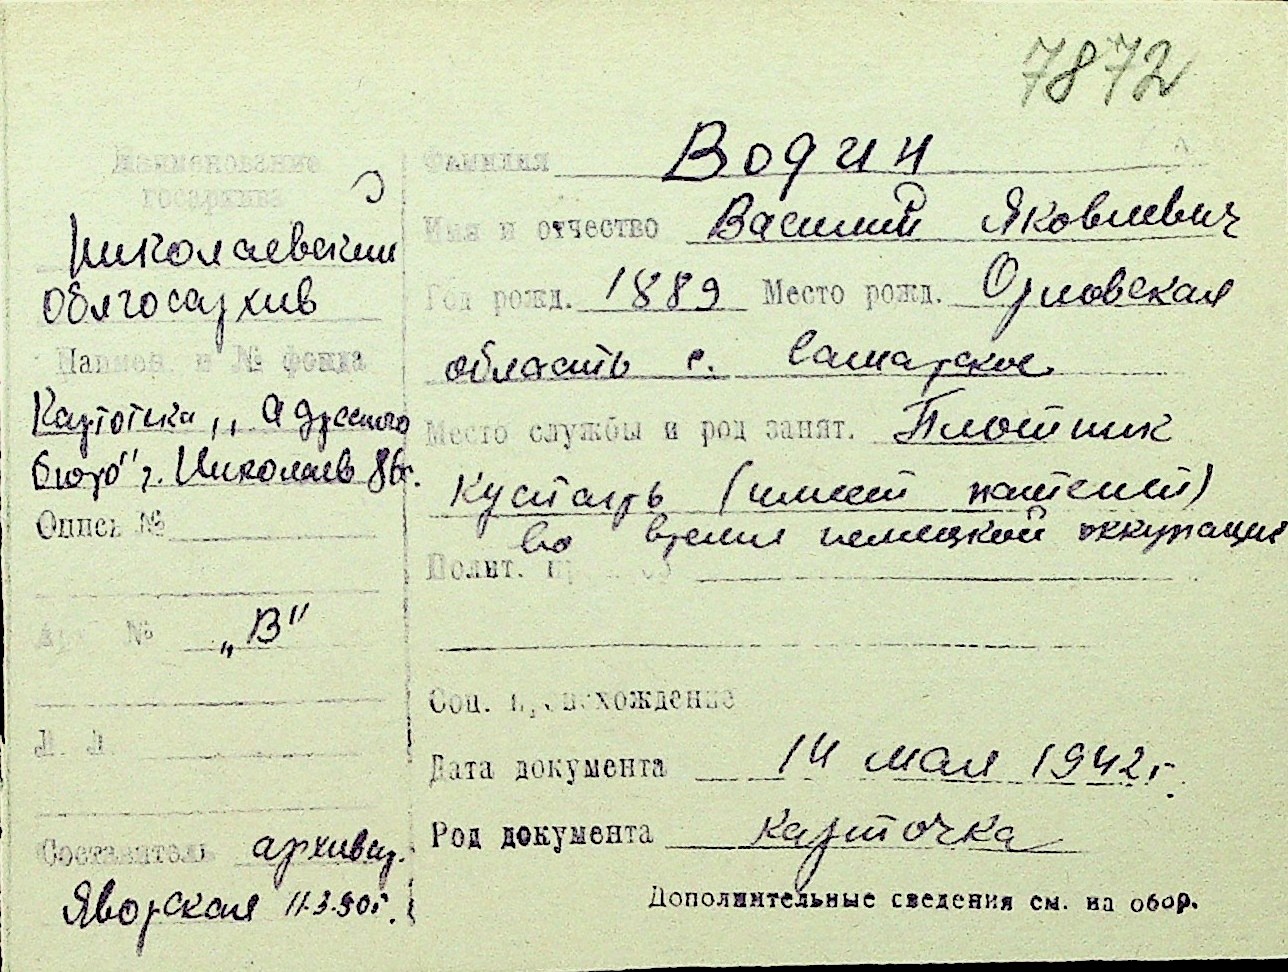 7872
Наименование
госархива
Николаевский
облгосархив
Наимен. и № фонда
Картотека „Адресного
бюро" г. Николаев
Опись №
Арх. №
„В"
Л. Л.
Составитель архивар.
Яворская 11.3.50г.
Фамилия Водин
Имя и отчество Василий Яковлевич
Год рожд. 1889 Место рожд. Орловская
область с. Самарское
Место службы и род занят. Плотник
Кустарь (имеет патент)
во время немецкой оккупации
Полит.
Соц. происхождение
Дата документа 14 мая 1942г.
Род документа карточка
Дополнительные сведения см. на обор.